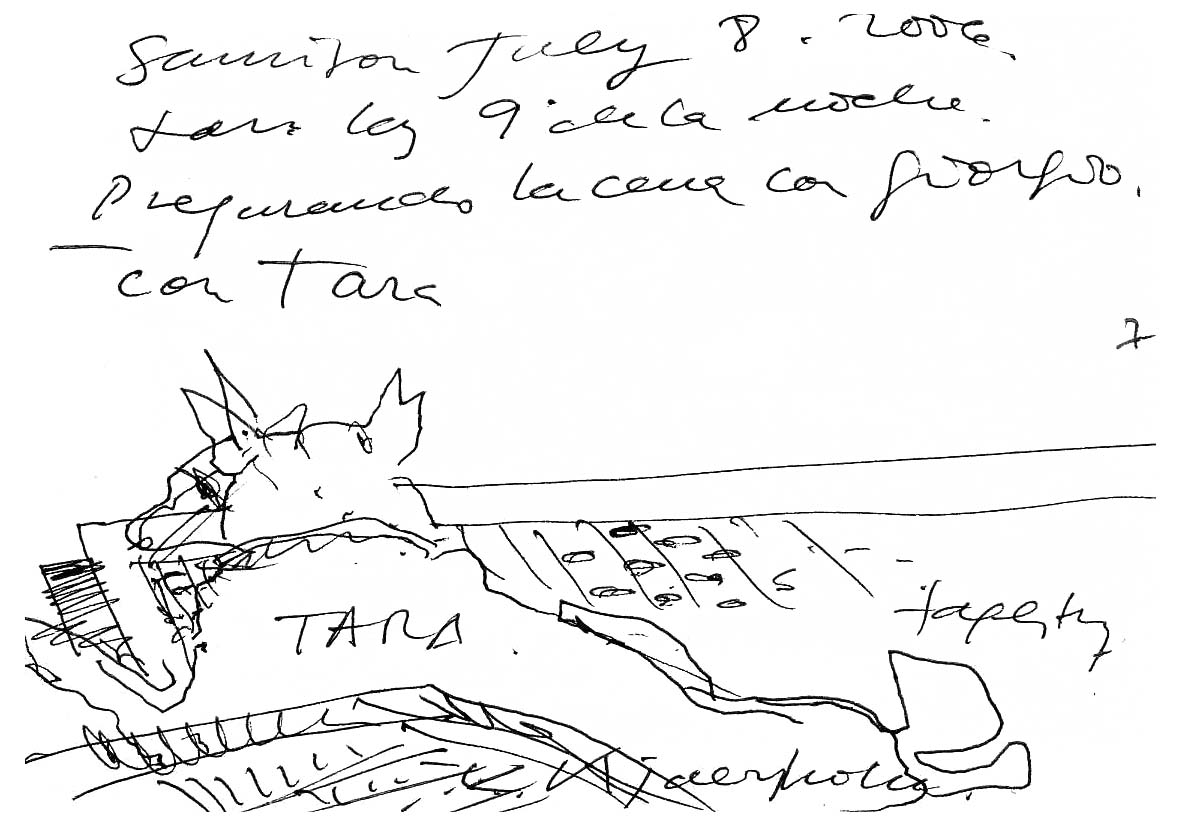 July 8. 2006.
las 9 de la noche.
Preparando la cena con Giorgio.
con Tara
7
TARA
tapestry
Kjaerholm